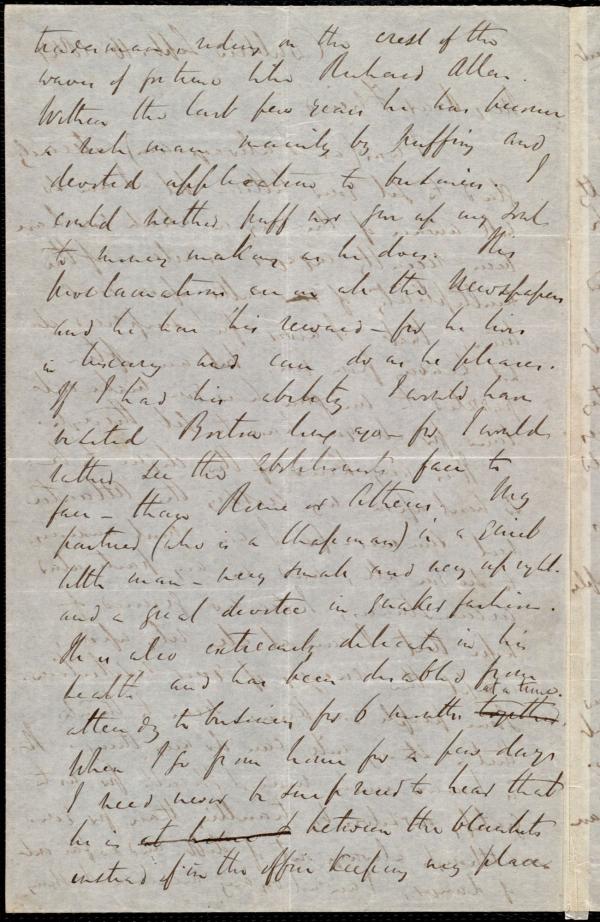 tradesman, riding on the crest of the
waves of fortune like Richard Allen.
Within the last few years he has become
a rich man mainly by puffing and
devoted application to business. I
could neither puff nor give up my soul
to money making as he does. His
proclamations are in all the Newspapers
and he has his reward - for he lives
in luxury and can do as he pleases.
If I had his ability I would have
visited Boston long ago - for I would
rather see the abolitionists face to
face - than Rome or Athens. My
partner (who is a Chapman) is a quiet
little man - very small and very upright.
and a great devotee in Quaker fashion.
He is also extremely delicate in his
health and has been disabled from
attendg to business for 6 months together at a time.
When I go from home for a few days
I need never be surprised to hear that
he is at home between the blankets
instead of in the office keeping my place